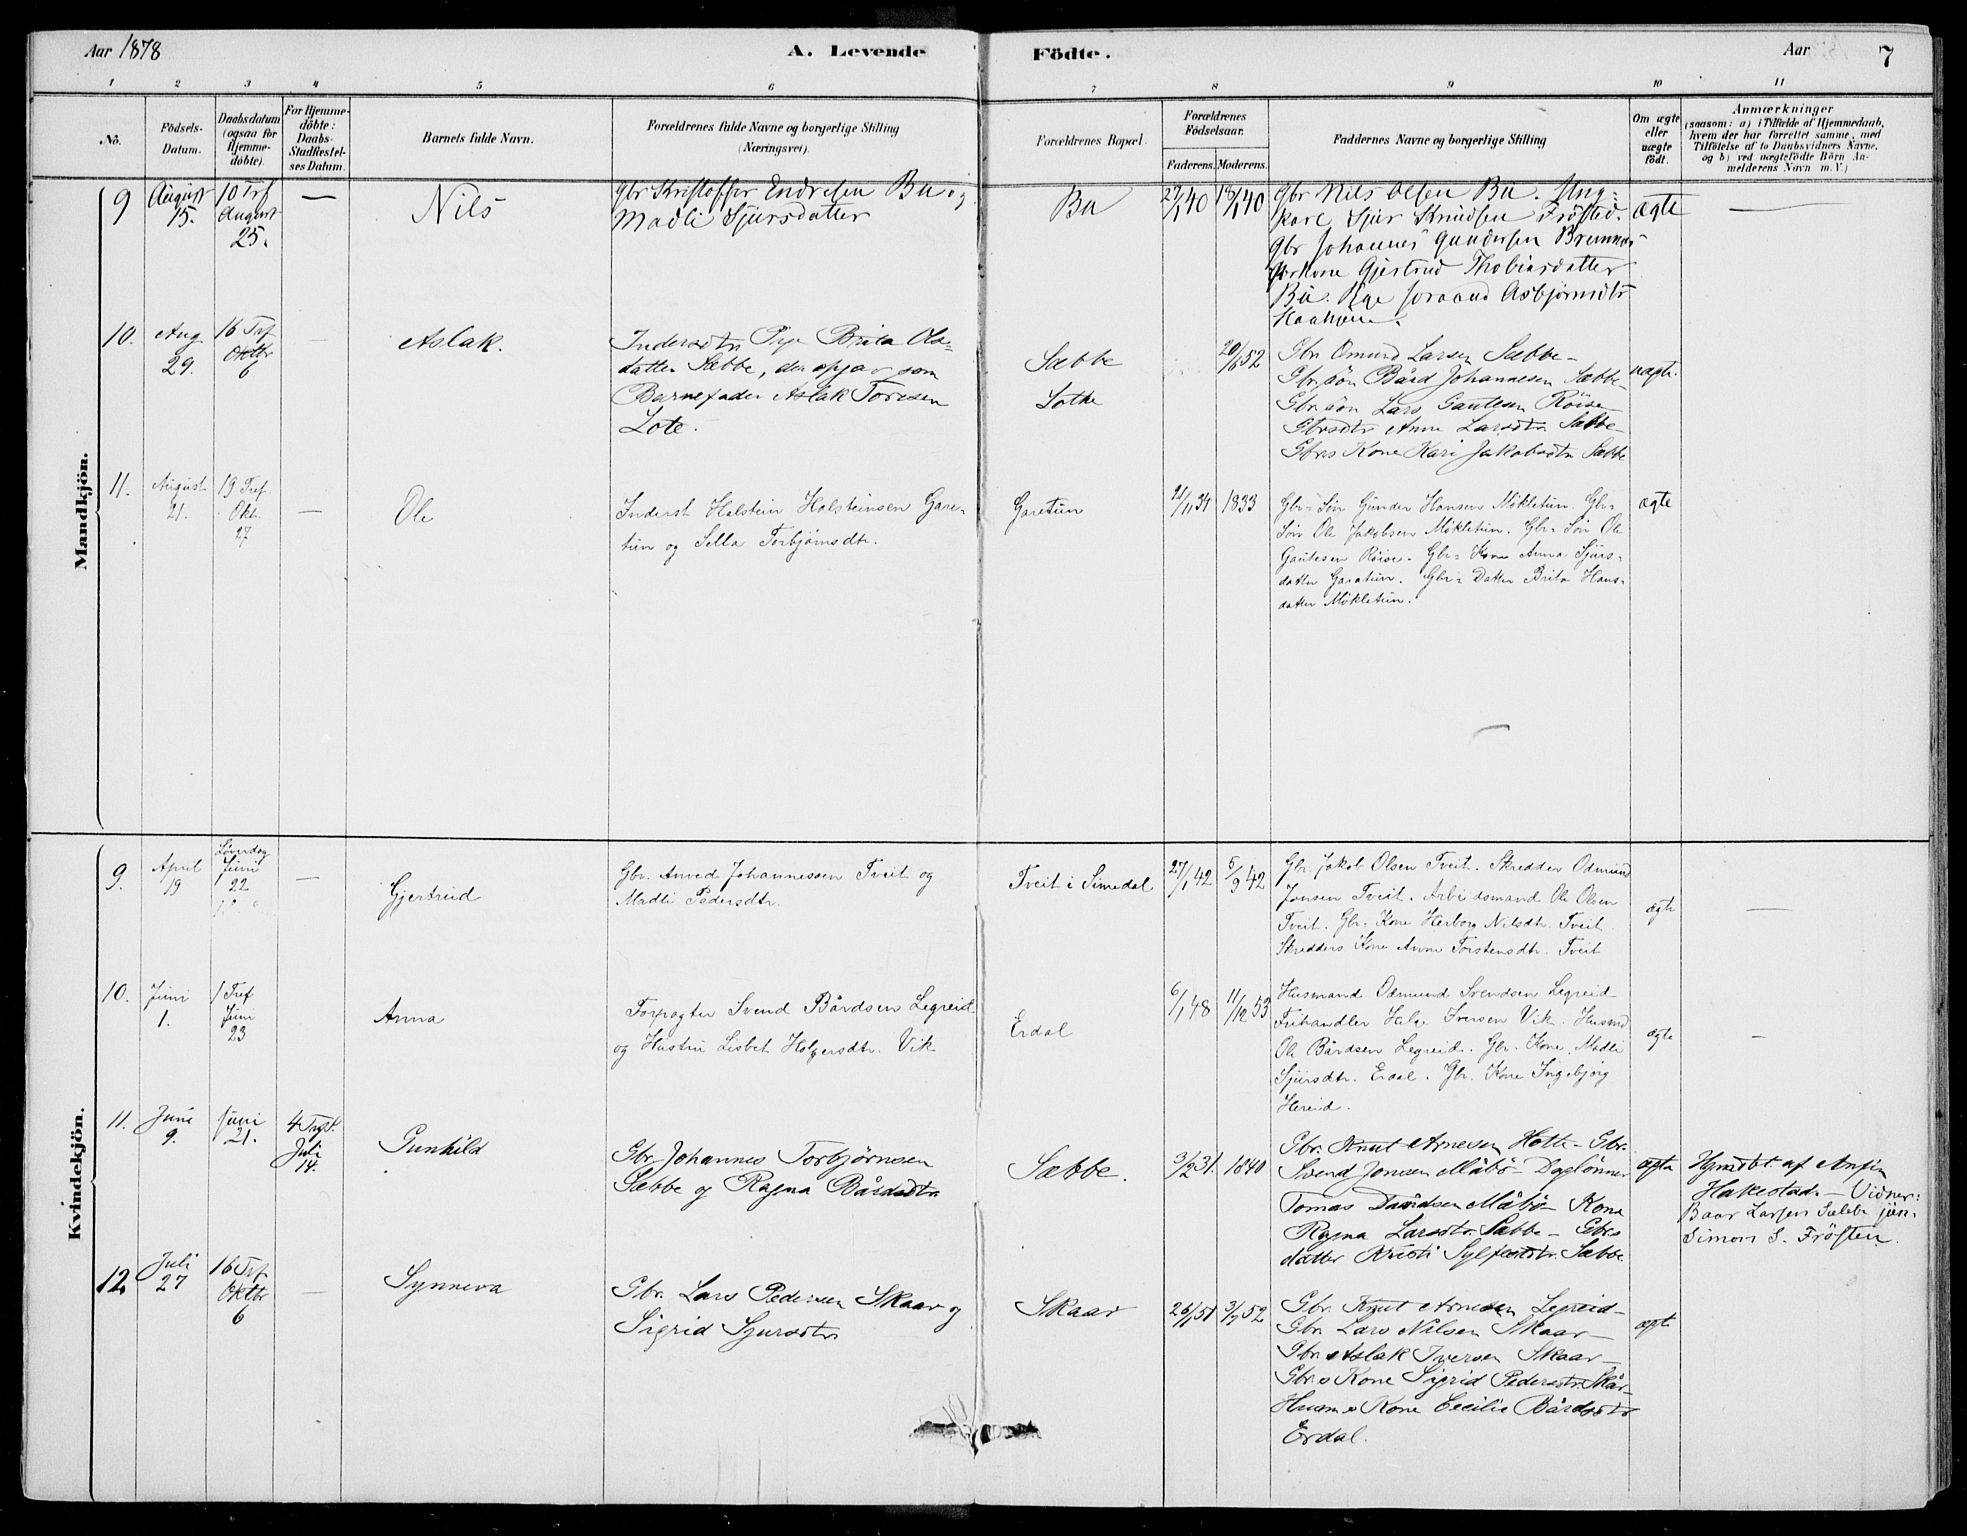 Aar 1878
A. Levende Födte.
Aar 7
1 2 3 4 5 6 7 8 9 10 11
No.
Födsels-Datum.
Daabsdatum (ogsaa for Hjemme-döbte).
For Hjemme-döbte: Daabs-Stadfæstel-ses Datum.
Barnets fulde Navn.
Forældrenes fulde Navne og borgerlige Stilling (Næringsvei).
Forældrenes Bopæl.
Forældrenes Födselsaar.
Faderens. Moderens.
Faddernes Navne og borgerlige Stilling
Om ægte eller uægte födt.
Anmærkninger
(saasom: a) i Tilfælde af Hjemmedaab,
hvem der har forrettet samme, med
Tilföielse af to Daabsvidners Navne,
og b) ved uægtefödte Börn An-
melderens Navn m. V.)
Mandkjön.
9 August 15. 10 Trf August 25. — Nils
Gbr Kristoffer Endresen Bu og
Madli Sjursdatter
Bu
27/1 40
Gbr Nils Olsen Bu. Ung-
karl Sjur Knudsen Frösted.
Gbr Johannes Gundersen Bremnes
Gbrkone Gjertrud Thobiasdatter
Bu. Pige Asbjörnsdtr
10. Aug 29. 16 Trf Oktbr 6 — Aslak.
Inderstdtr Pige Brita Ols-
datter Sæbbe, der opgav som
Barnefader Aslak Toresen
Lote.
Sæbbe
Lothe
20/6 52
Gbr. Omund Larsen Sæbbe-
Gbr. sön Bård Johannesen Sæbbe-
Gbr. sön Lars Gautesen Röise-
Gbrsdtr Anne Larsdtr Sæbbe-
Gbrs Kone Kari Jakobsdtr Sæbbe
uægte.
11. August 21. 19 Tref. Okt. 27 — Ole
Inderst Halstein Halsteinsen Gare-
tun og Sella Torbjörnsdtr.
Garetun
21/11 34 1833
Gbr= Søn Gunder Hansen Mökletun. Gbr=
Søn Ole Jakobsen Mökletun. Gbr= Søn Ole
Gautesen Röise. Gbr= Kone Anna Sjurs-
datter Garatun. Gbr= Datter Brita Hans-
datter Mökletun.
ægte
Kvindekjön.
9. April 19 Löverdag Juni 22 — Gjertrud
Gbr. Anved Johannessen Tveit og
Madli Pedersdtr.
Tveit i Simedal
27/1 42 5/9 42
Gbr. Jakob Olsen Tveit. Skredder Odmund
Jonsen Tveit. Arbeidsmand Ole Olsen
Tveit. Gbr. Kone Herborg Nilsdtr. Tveit.
Skredders Kone Anne Torstensdtr. Tveit
ægte —
10. Juni 1. 1 Tref Juni 23 Anna
Forpagter Svend Bårdsen Legreid
og Hustru Lisbet Holgersdtr. Vik
Erdal
6/1 48 11/12 53
Husmand Odmund Svendsen Legreid
Frihandler Helge Iversen Vik. Husmd
Ole Bårdsen Legreid. Gbr. Kone Madli
Sjursdtr. Erdal. Gbr. Kone Ingebjörg
Hereid.
ægte —
11. Juni 9. Juni 21. 4 Trgt. Juli 14. Gunhild
Gbr. Johannes Torbjørnsen
Sæbbe og Ragna Bårdsdtr
Sæbbe.
3/2 31. 1840
Gbr. Knut Arnesen Hotle- Gbr.
Svend Jonsen Måbö- Daglönner
Tomas Davidsen Måbö- Kone
Ragna Larsdtr. Sæbbe- Gbrs
datter Kristi Sylfestdtr. Sæbbe
ægte
Hjmdbt af Anfin
Hakestad. - Vidner:
Baar Larsen Sæbbe jun.
Simon S. Frösten.
12. Juli 27 16 Trf. Oktbr 6 — Synneva
Gbr. Lars Pedersen Skaar og
Sigrid Sjursdtr
Skaar
26/1 51 3/7 52
Gbr. Knut Arnesen Legreid-
Gbr. Lars Nilsen Skaar-
Gbr. Aslak Iversen Skaar-
Gbrs Kone Sigrid Pedersdtr. Skår-
Husm.s Kone Cecilie Bårdsdtr
Erdal.
ægte